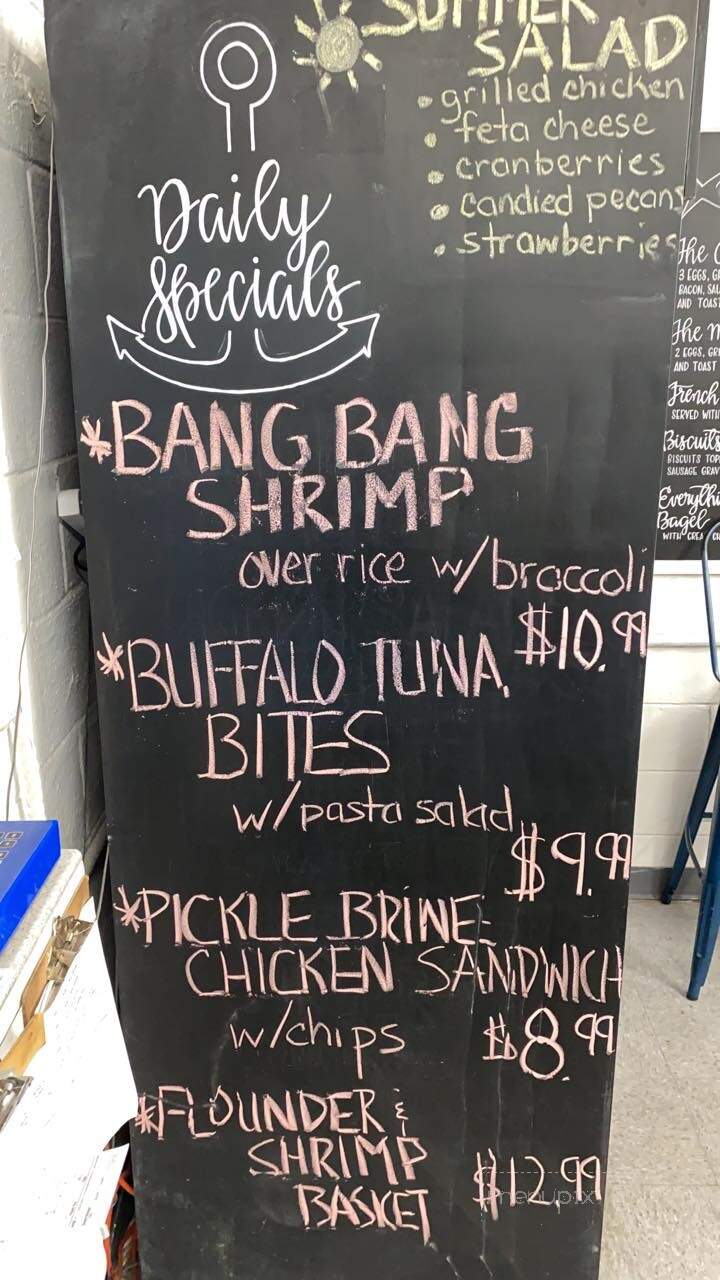 SUMMER
SALAD
• grilled chicken
• feta cheese
• cranberries
• candied pecans
• strawberries
Daily
Specials
*BANG BANG
SHRIMP
over rice w/broccoli
$10.99
*BUFFALO TUNA
BITES
w/pasta salad
$9.99
*PICKLE BRINE
CHICKEN SANDWICH
w/chips $8.99
*FLOUNDER &
SHRIMP
BASKET $12.99
The
3 EGGS,
BACON,
AND TOAST
The
2 EGGS,
AND TOAST
French
SERVED WITH
Biscuits
BISCUITS
SAUSAGE
Bagel
WITH
menupix